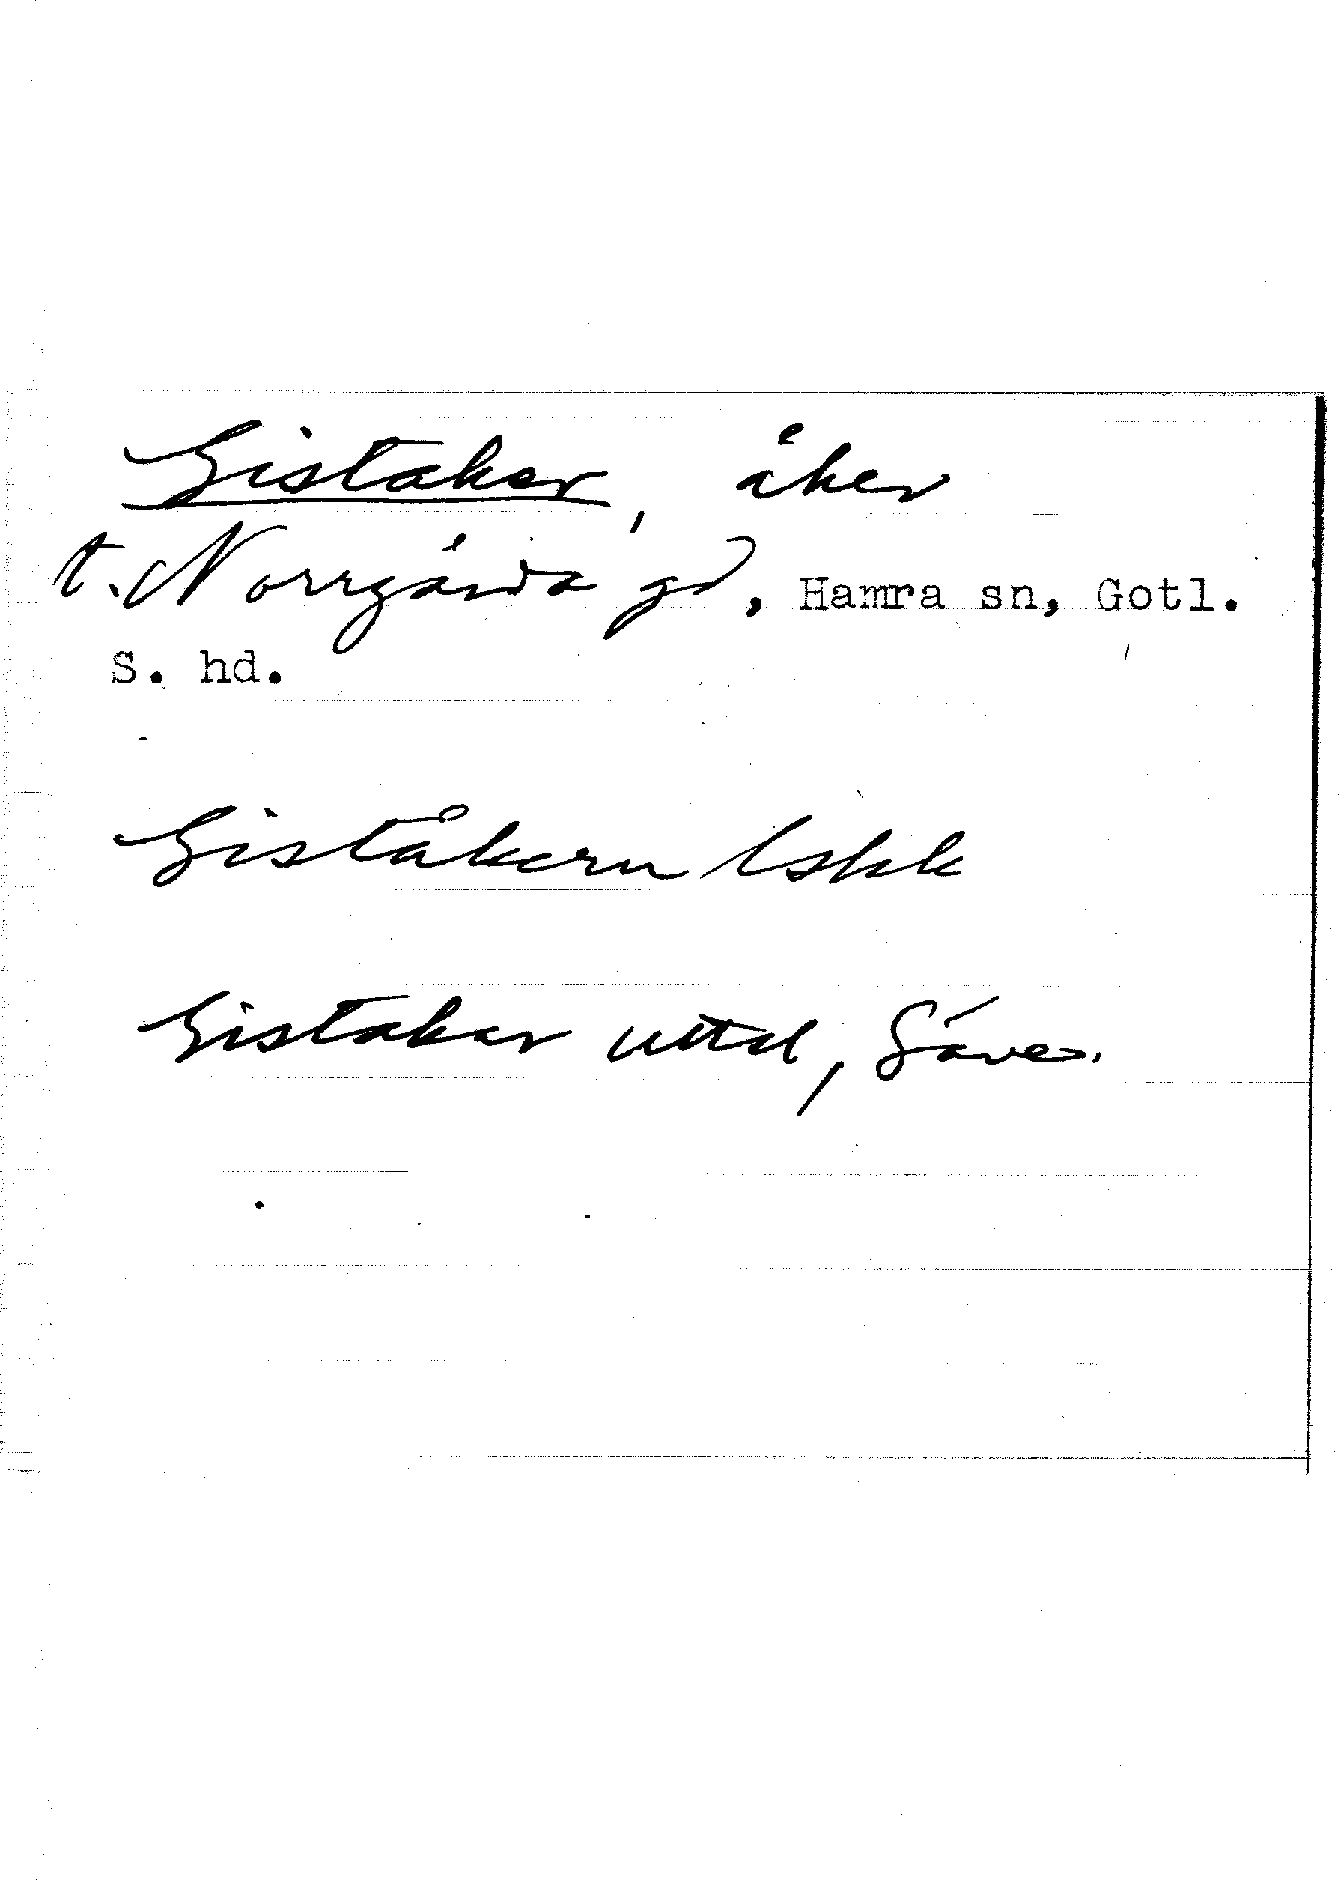 Gistaker, åker
t. Norrgårda gd, Hamra sn, Gotl.
S. hd.
Giståkern lskk
Gistakar uttal, Säve.